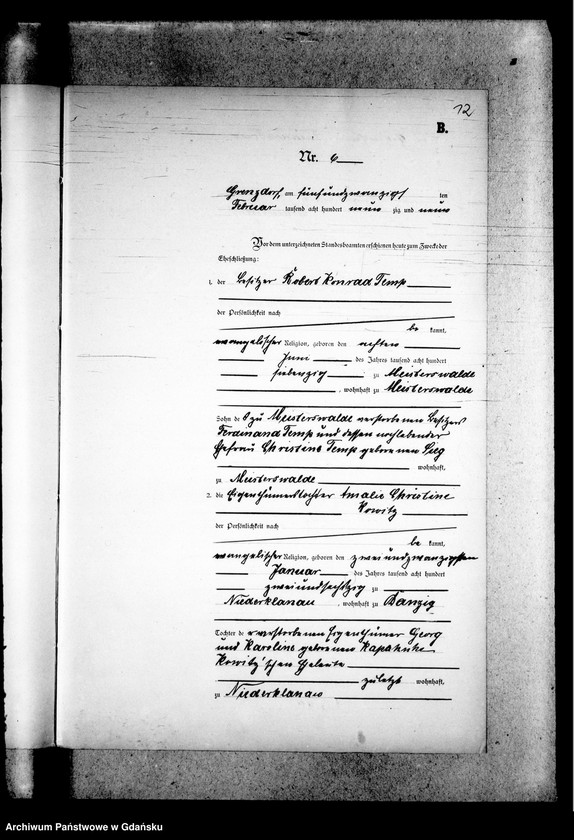 12
B.
Nr. 6
Grenzdorf, am fünfundzwanzigs ten
Februar tausend acht hundert neun zig und neun
Vor dem unterzeichneten Standesbeamten erschienen heute zum Zwecke der
Eheschließung:
1. der Besitzer Robert Konrad Temp
der Persönlichkeit nach
be kannt,
evangelischer Religion, geboren den achten
Juni des Jahres tausend acht hundert
siebenzig zu Meisterswalde
, wohnhaft zu Meisterswalde
Sohn des zu Meisterswalde verstorbenen Besitzers
Ferdinand Temp und dessen nochlebender
Ehefrau Christine Temp geborenen Sieg
wohnhaft,
zu Meisterswalde
2. die Eigenthümertochter Amalie Christine
Kowitz
der Persönlichkeit nach
be kannt,
evangelischer Religion, geboren den zweiundzwanzigsten
Januar des Jahres tausend acht hundert
zweiundsechszig zu
Niederklanau, wohnhaft zu Danzig
Tochter der verstorbenen Eigenthümer Georg
und Karoline geborenen
Kowitz'schen Eheleute
zuletzt wohnhaft,
zu Niederklanau
Archiwum Państwowe w Gdańsku